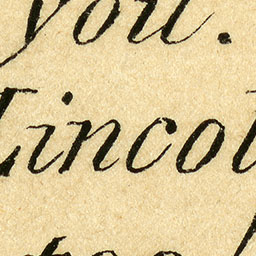 you.
Lincol